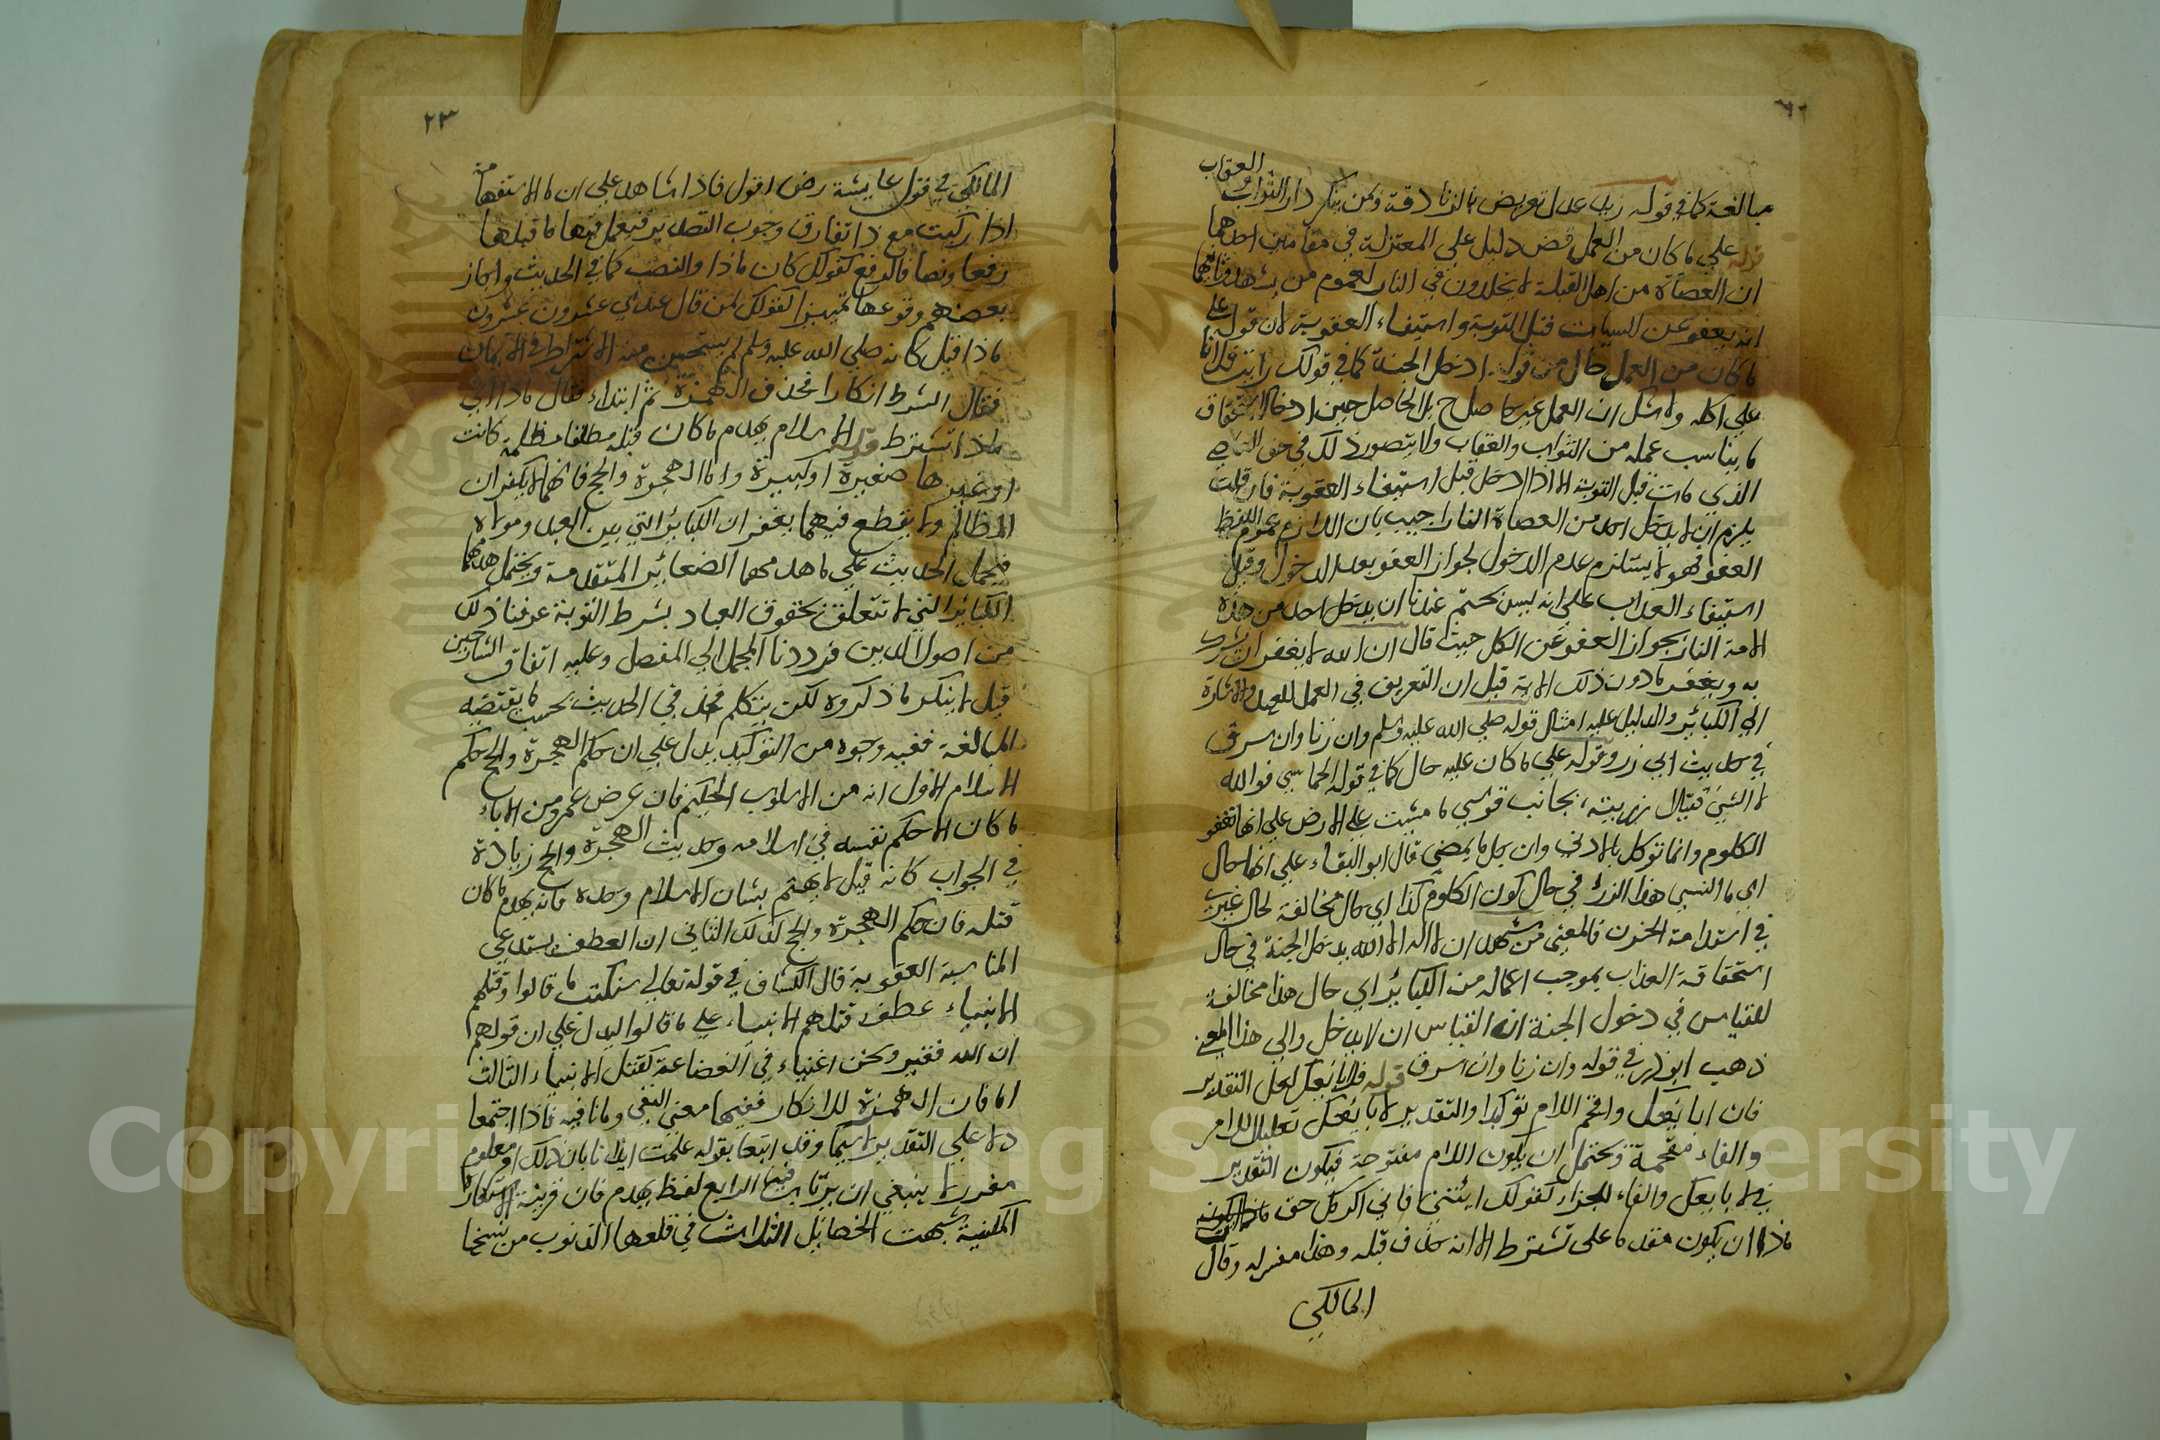 العقاب
مبالغة كما في قوله زيد عدل تعريض بالزنادقة ومن ينكر دار الثواب و
قوله علي ما كان من العمل فض دليل علي المعتزلة في مقامين احدهما
ان العصاة من اهل القبلة لا يخلدون في النار لعموم من شهد وثانيهما
انه يعفو عن السيات قبل التوبة واستيفاء العقوبة لان قوله علي
ما كان من العمل حال من قوله ادخل الجنة كما في قولك رايت فلانا
علي اكله ولا شك ان العمل غير حاصل ح بل الحاصل حين ادخاله استحقاق
ما يناسب عمله من الثواب والعقاب ولا يتصور ذلك في حق العاصي
الذي مات قبل التوبة الا اذا ادخل قبل استيفاء العقوبة فان قلت
يلزم ان لا يدخل احد من العصاة النار اجيب بان اللازم عموم اللفظ
العفو فهو لا يستلزم عدم الدخول لجواز العفو بعد الدخول وقبل
استيفاء العذاب علي انه ليس بحتم عندنا ان يدخل احد من هذه
الامة النار بجواز العفو عن الكل حيث قال ان الله لا يغفر ان يشرك
به ويغفر ما دون ذلك الاية قيل ان التعريف في العمل للعهد والاشارة
الي الكبائر والدليل عليه امثال قوله صلي الله عليه وسلم وان زنا وان سرق
في حديث ابي ذر وقوله علي ما كان عليه حال كما في قوله الحماسي فوالله
لا انسي قتيلا رزيته بجانب قوسي ما مشيت علي الارض علي انها تعفو
الكلوم وانما توكل بالادني وان جل ما يمضي قال ابو البقاء علي انها حال
اي ما انسي هذا الزرء في حال كون الكلوم كذا اي حال مخالفة لحال غيري
في استدامة الحزن فالمعني من شهد ان لا اله الا الله يدخل الجنة في حال
استحقاقه العذاب بموجب اعماله من الكبائر اي حال هذا مخالفة
للقياس في دخول الجنة اذ القياس ان لا يدخل والي هذا المعني
ذهب ابو ذر في قوله وان زنا وان سرق قوله فلابايعك لعل التقدير
فان ابايعك واقحم اللام توكيدا والتقدير لابايعك تعليلا للامر
والفاء مقحمة ويحتمل ان يكون اللام مفتوحة فيكون التقدير
فلابايعك والفاء للجزاء كقولك ايتني فاني اكرمك حق
ماذا ان يكون مقدما علي تشترط الا انه حذف قبله وهذا مفسر له وقال
المالكي
٢٣
المالكي في قول عايشة رض اقول فاذا شاهد علي ان ما الاستفهامية
اذا ركبت مع ذا تفارق وجوب التصدير فيعمل فيها ما قبلها
رفعا ونصبا فالرفع كقولك كان ماذا والنصب كما في الحديث واجاز
بعضهم وقوعها تمييزا كقولك لمن قال عندي عشرون عشرون
ماذا قيل كانه صلي الله عليه وسلم لم يستحسن منه الاشتراط في الايمان
فقال اتشترط انكارا فحذف الهمزة ثم ابتداء فقال ماذا اي
ماذا تشترط قوله الاسلام يهدم ما كان قبله مطلقا مظلمة كانت
او غيرها صغيرة او كبيرة واما الهجرة والحج فانهما لا يكفران
المظالم ولا يقطع فيهما بغفران الكبائر التي بين العبد ومولاه
فيحمل الحديث علي ما هدمهما الصغائر المتقدمة ويحتمل هدمهما
الكبائر التي لا تتعلق بحقوق العباد بشرط التوبة عرفنا ذلك
من اصول الدين فرددنا المجمل الي المفصل وعليه اتفاق الشارحين
قيل لا ينكر ما ذكروه لكن يتكلم فحذ في الحديث بحسب ما يقتضيه
المبالغة ففيه وجوه من التوكيد يدل علي ان حكم الهجرة والحج حكم
الاسلام الاول انه من الاسلوب الحكيم فان عرض عمرو من الاباء
ما كان الا حكم نفسه في اسلامه وحديث الهجرة والحج زيادة
في الجواب كانه قيل لا يهتم بشان الاسلام وحده فانه يهدم ما كان
قبله فان حكم الهجرة والحج كذلك الثاني ان العطف يستدعي
المناسبة القوية قال الكشاف في قوله تعالي سنكتب ما قالوا وقتلهم
الانبياء عطف قتلهم الانبياء علي ما قالوا ليدل علي ان قولهم
ان الله فقير ونحن اغنياء في الفضاعة كقتل الانبياء الثالث
اما فان الهمزة للانكار ففيها معني النفي وما نافية فاذا اجتمعا
دلا علي التقدير لا سيما وقد اتبعا بقوله علمت ايذانا بان ذلك امر معلوم
مقرر لا ينبغي ان يرتاب فيها الرابع لفظ يهدم فان قرينة الاستعارة
المكنية شبهت الخصايل الثلاث في قلعها الذنوب من سنخها